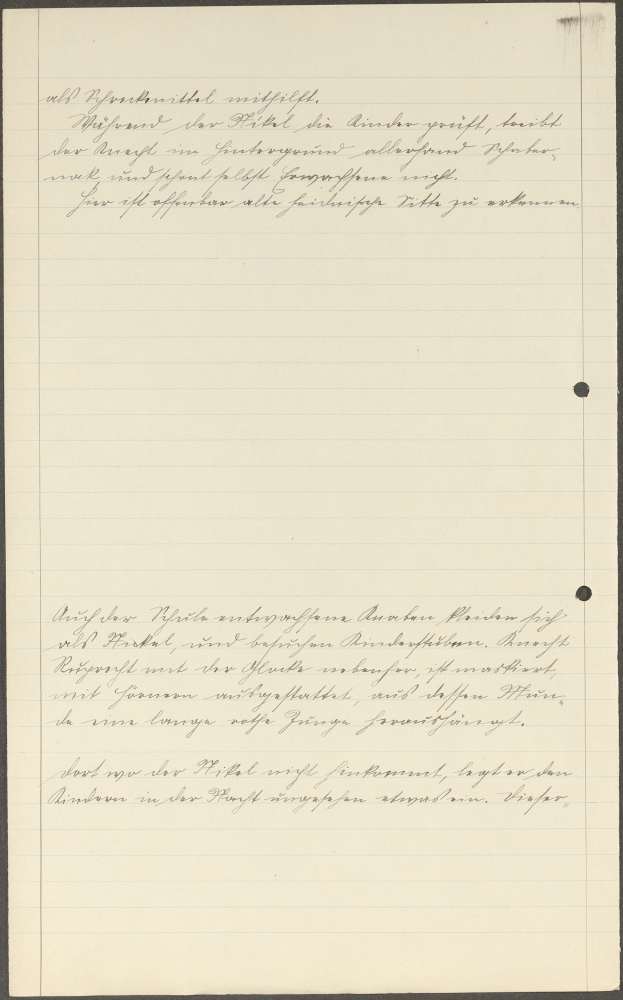 als Schreckmittel mithilft.
Während der Nikel die Kinder prüft, treibt
der Knecht im Hintergrund allerhand Schaber-
nak und schont selbst Erwachsene nicht.
Hier ist offenbar alte heidnische Sitte zu erkennen
Auch der Schule entwachsene Knaben kleiden sich
als Nickel, und besuchen Kinderstuben. Knecht
Ruprecht mit der Glocke nebenher, ist maskiert,
mit Hörnern ausgestattet, aus dessen Mun-
de eine lange rothe Zunge heraushängt.
Dort wo der Nikel nicht hinkommt, legt er den
Kindern in der Nacht ungesehen etwas ein. Dieser-